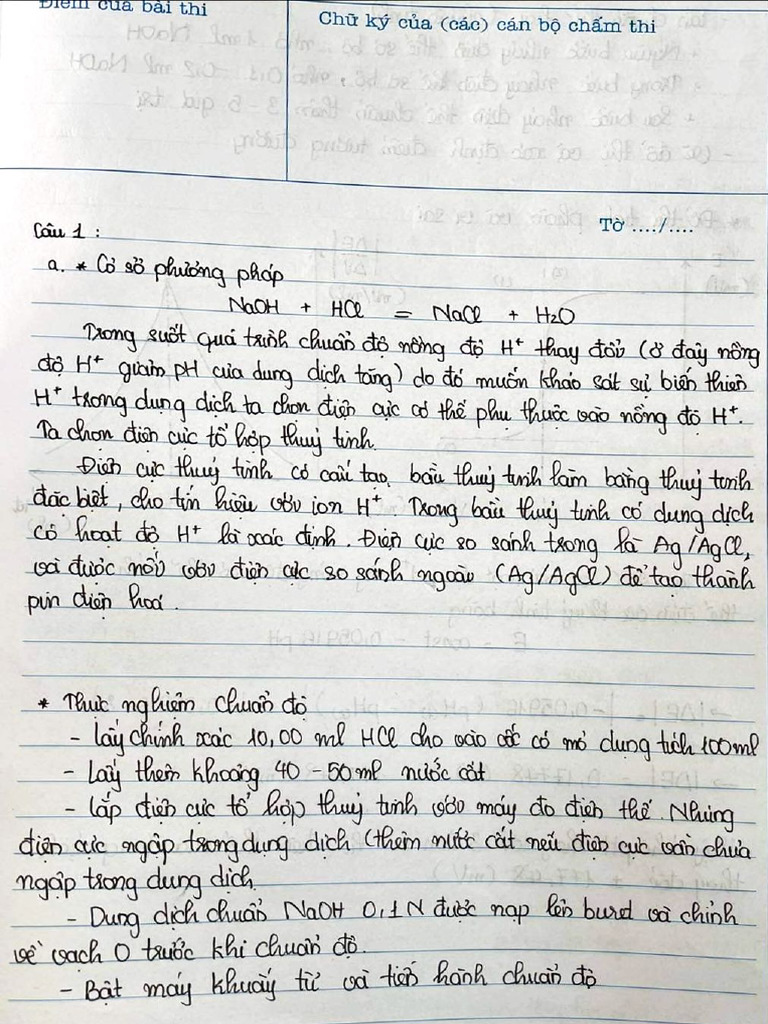 Điểm của bài thi
Chữ ký của (các) cán bộ chấm thi
Tờ ..../....
Câu 1 :
a. * Cơ sở phương pháp
NaOH + HCl = NaCl + H2O
Trong suốt quá trình chuẩn độ nồng độ H+ thay đổi (ở đây nồng
độ H+ giảm pH của dung dịch tăng) do đó muốn khảo sát sự biến thiên
H+ trong dung dịch ta chọn điện cực có thế phụ thuộc vào nồng độ H+.
Ta chọn điện cực tổ hợp thuỷ tinh.
Điện cực thuỷ tinh có cấu tạo bầu thuỷ tinh làm bằng thuỷ tinh
đặc biệt, cho tín hiệu với ion H+. Trong bầu thuỷ tinh có dung dịch
có hoạt độ H+ là xác định. Điện cực so sánh trong là Ag/AgCl,
và được nối với điện cực so sánh ngoài (Ag/AgCl) để tạo thành
pin điện hoá.
* Thực nghiệm chuẩn độ
- Lấy chính xác 10,00 ml HCl cho vào cốc có mỏ dung tích 100ml
- Lấy thêm khoảng 40 - 50ml nước cất
- Lắp điện cực tổ hợp thuỷ tinh với máy đo điện thế. Nhúng
điện cực ngập trong dung dịch (thêm nước cất nếu điện cực vẫn chưa
ngập trong dung dịch.
- Dung dịch chuẩn NaOH 0,1N được nạp lên buret và chỉnh
về vạch 0 trước khi chuẩn độ.
- Bật máy khuấy từ và tiến hành chuẩn độ